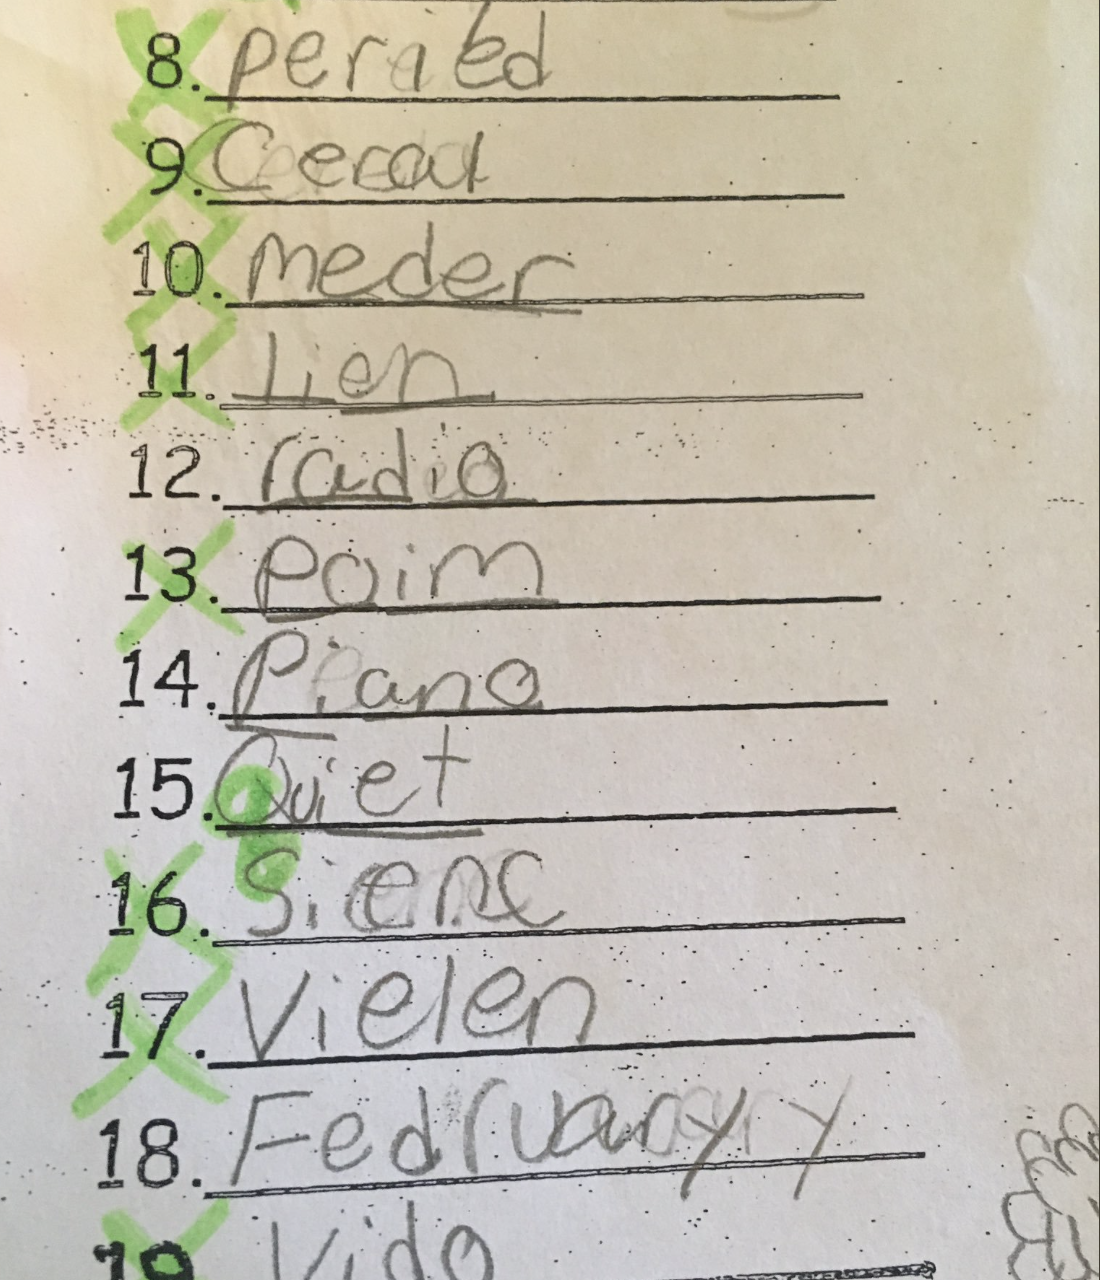 8. peraed
9. Cereal
10. meder
11. Lien
12. radio
13. Poim
14. Piano
15. Quiet
16. Sienc
17. Vielen
18. Fedruary
19. Vido